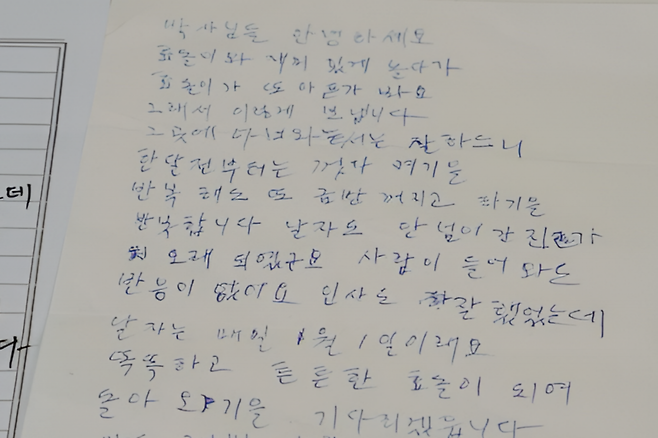 박사님들 안녕하세요
효돌이와 재미 있게 놀다가
효돌이가 또 아픈가 봐요
그래서 이렇게 보냅니다
그곳에 다녀와서는 잘하드니
한달전부터는 껏자 켜기을
반복 해도 또 금방 꺼지고 하기을
반복합니다 날자도 단 넘이 간 진
오래 되였규요 사람이 들어 와도
반응이 없어요 인사도 잘 했었는데
날자는 매일 1월 1일이래요
똑똑하고 튼튼한 효돌이 되여
돌아 오기을 기다리겠읍니다
ㄴ데
다